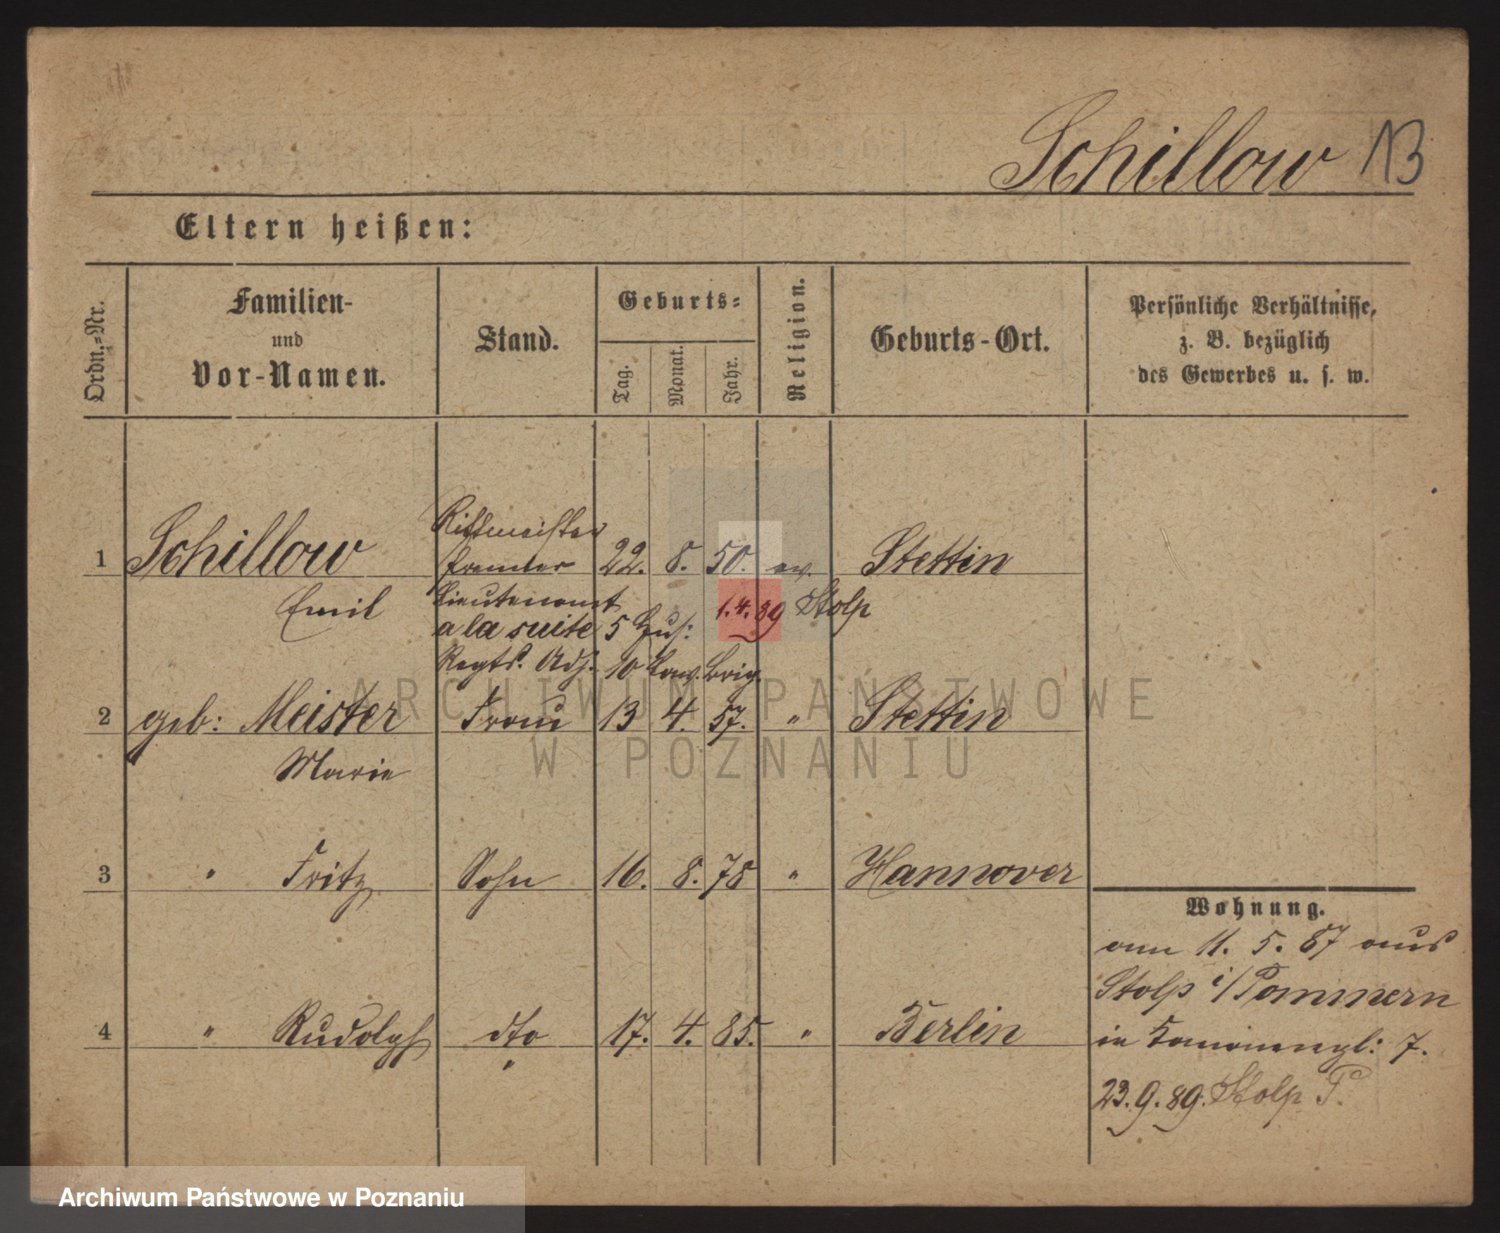 Schillow 13
Eltern heißen:
Ordn.-Nr.
Familien-
und
Vor-Namen.
Stand.
Geburts-
Tag.
Monat.
Jahr.
Religion.
Geburts-Ort.
Persönliche Verhältnisse,
z. B. bezüglich
des Gewerbes u. s. w.
Rittmeister
1 Schillow Premier 22. 8. 50. ev. Stettin
Emil Lieutenant 1.4.89 Stolp
a la suite 5 Hus:
Regts. Adj. 10 Cav. Brig.
ARCHIWUM PAŃSTWOWE
2 geb: Meister Frau 13 4. 57. " Stettin
W POZNANIU
Marie
3 " Fritz Sohn 16. 8. 78 " Hannover
Wohnung.
am 11. 5. 87 aus
Stolp i/Pommern
4 " Rudolph dto 17. 4. 85. " Berlin
in 7.
23.9.89. Stolp P.
Archiwum Państwowe w Poznaniu